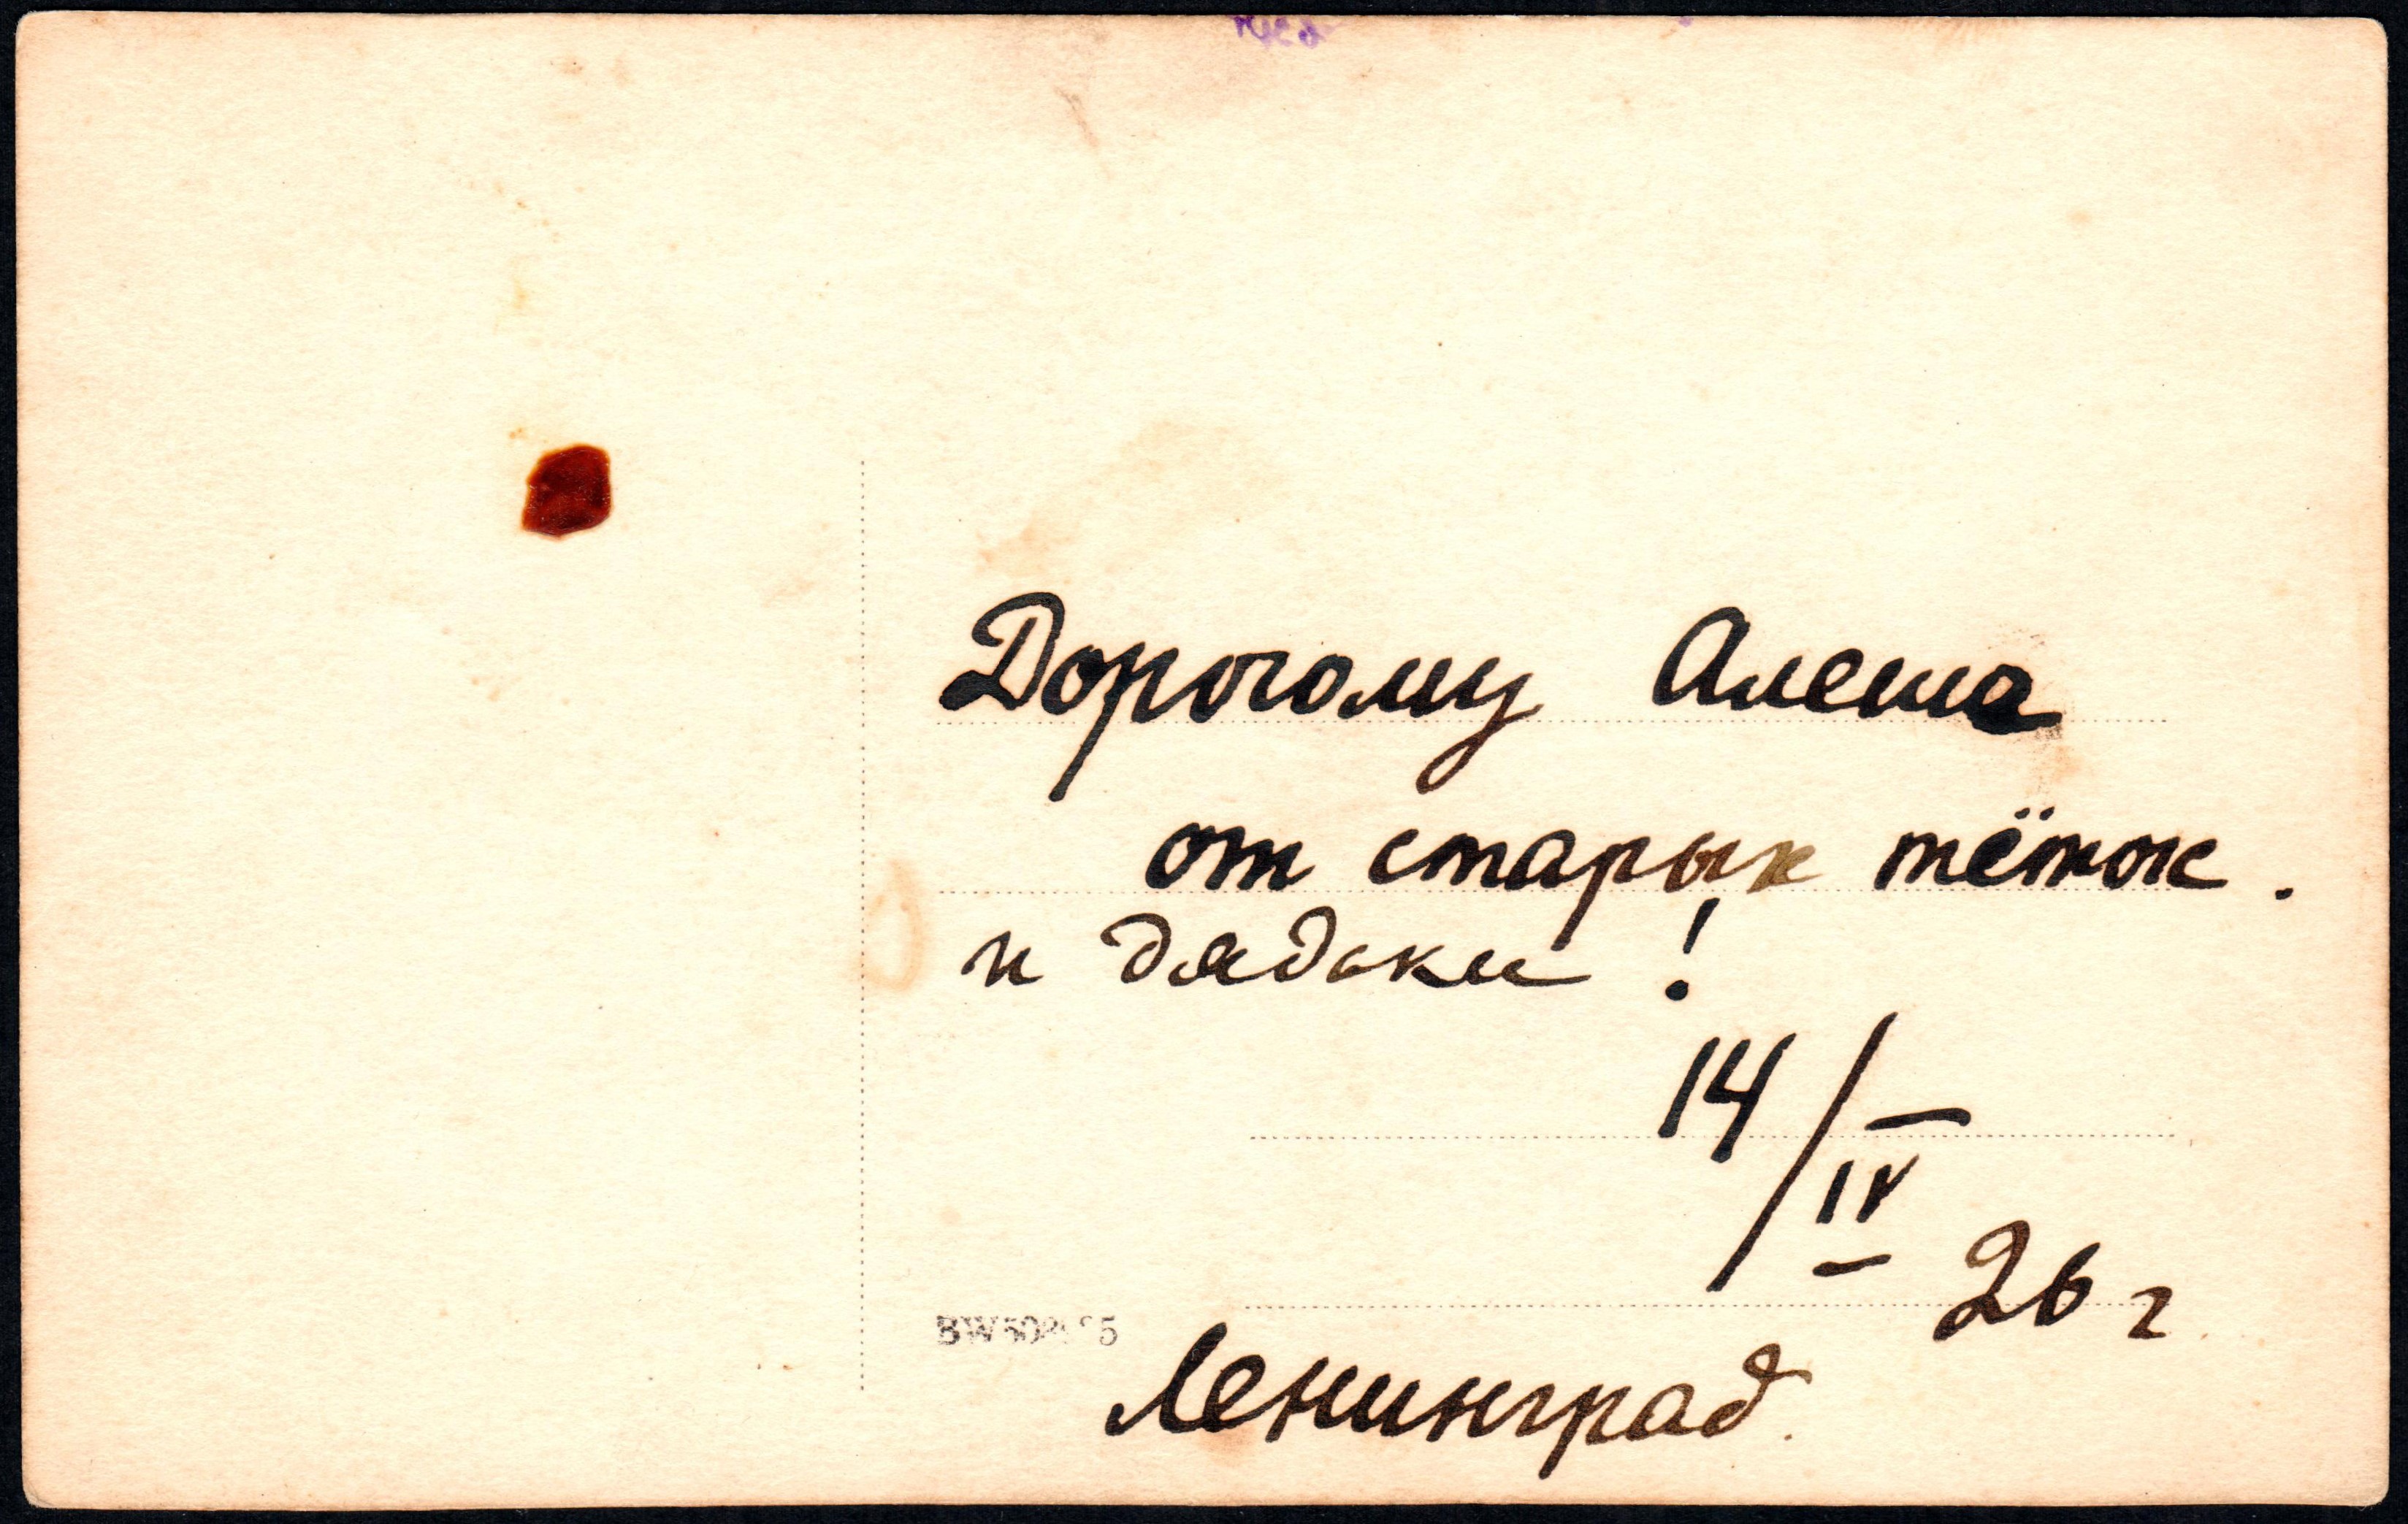 Дорогому Алеша
от старых тёток.
и дядьки!
14/IV
26 г
Ленинград.